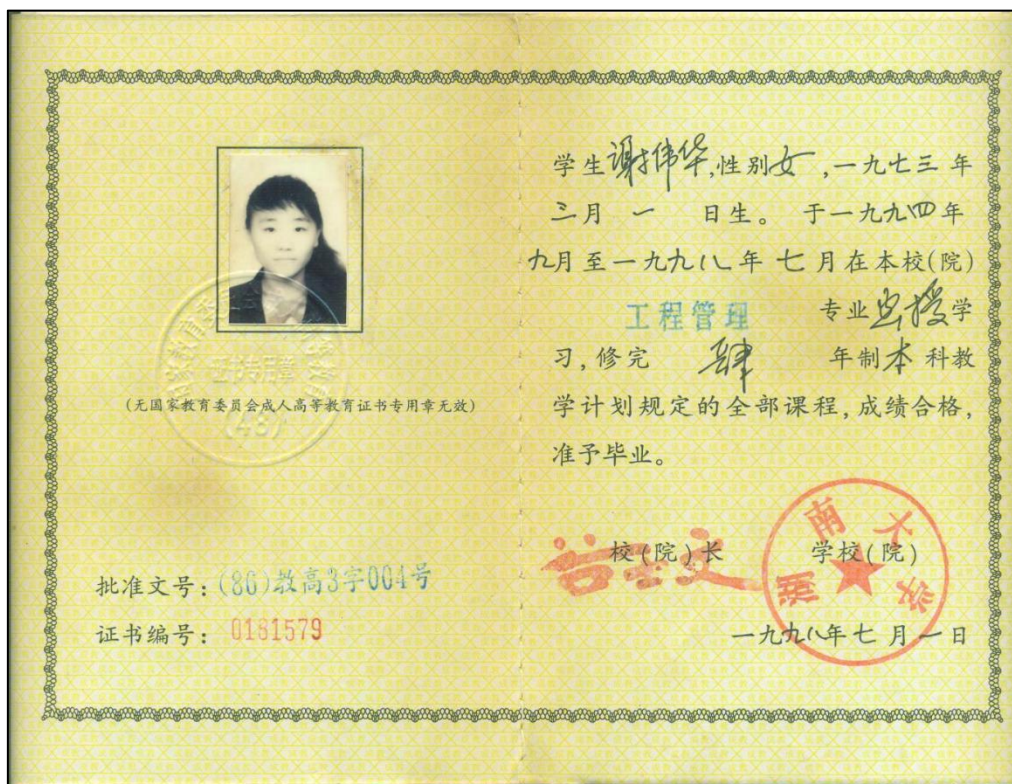 证书专用章
(无国家教育委员会成人高等教育证书专用章无效)
(48)
批准文号：(86)教高3字004号
证书编号：0181579
学生谢伟华,性别女,一九七三年
三月 一 日生。于一九九四年
九月至一九九八年七月在本校(院)
工程管理 专业函授学
习,修完 肆 年制本科教
学计划规定的全部课程,成绩合格,
准予毕业。
校(院)长 学校(院)
湖南大学
一九九八年七月一日